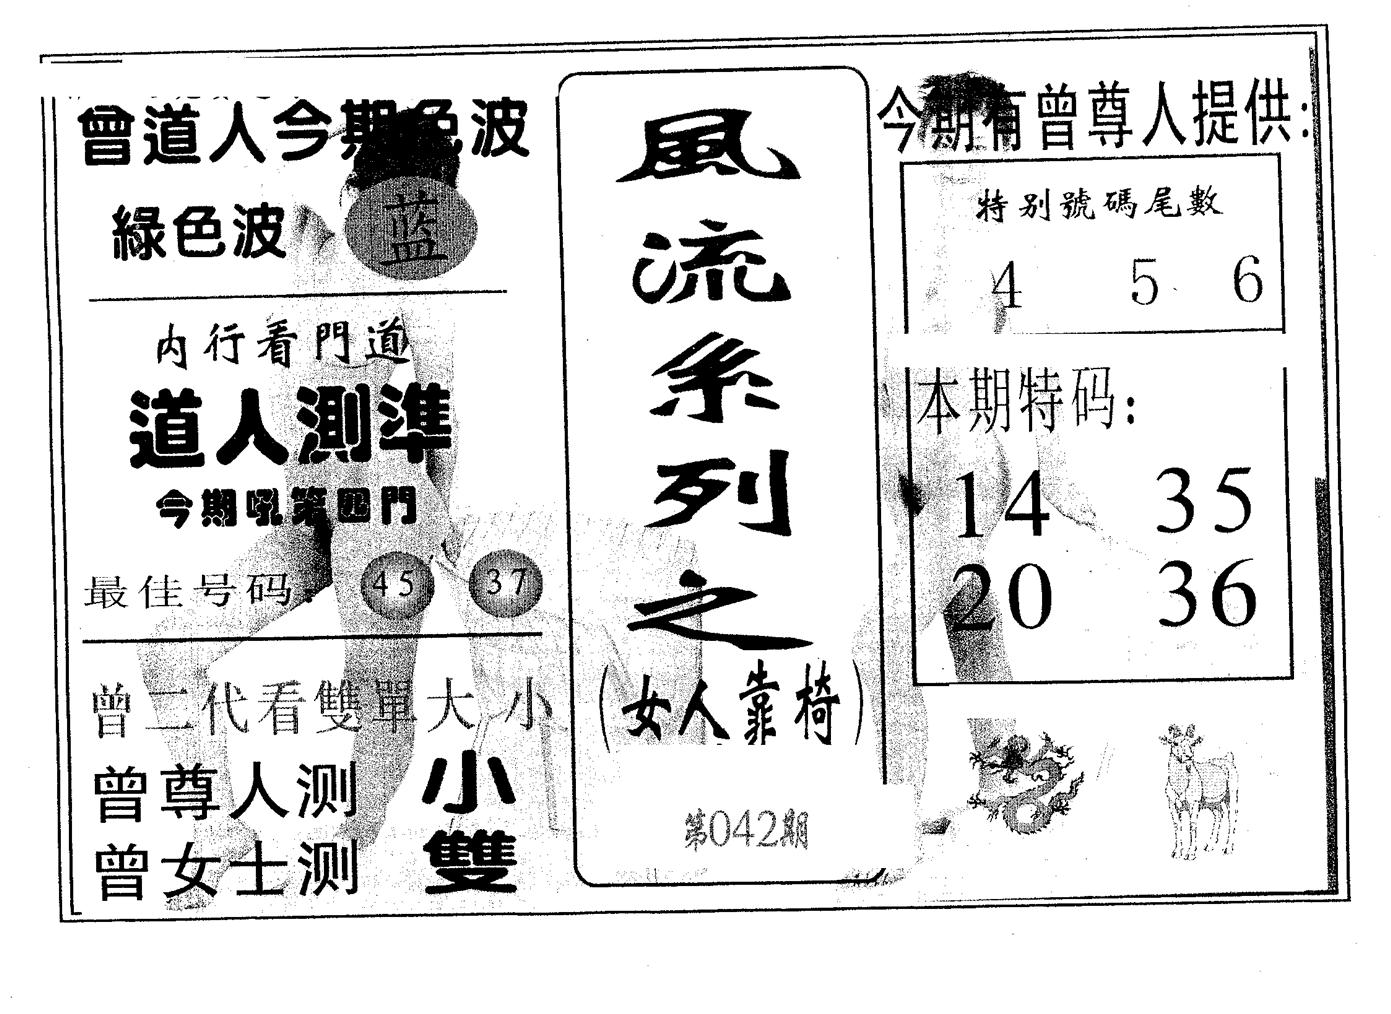 曾道人今期色波
綠色波 蓝
内行看門道
道人測準
今期吼第四門
最佳号码: 45 37
曾二代看雙單大小
曾尊人测 小
曾女士测 雙
風流系列之
(女人靠椅)
第042期
今期有曾尊人提供:
特别號碼尾數
4 5 6
本期特码:
14 35
20 36